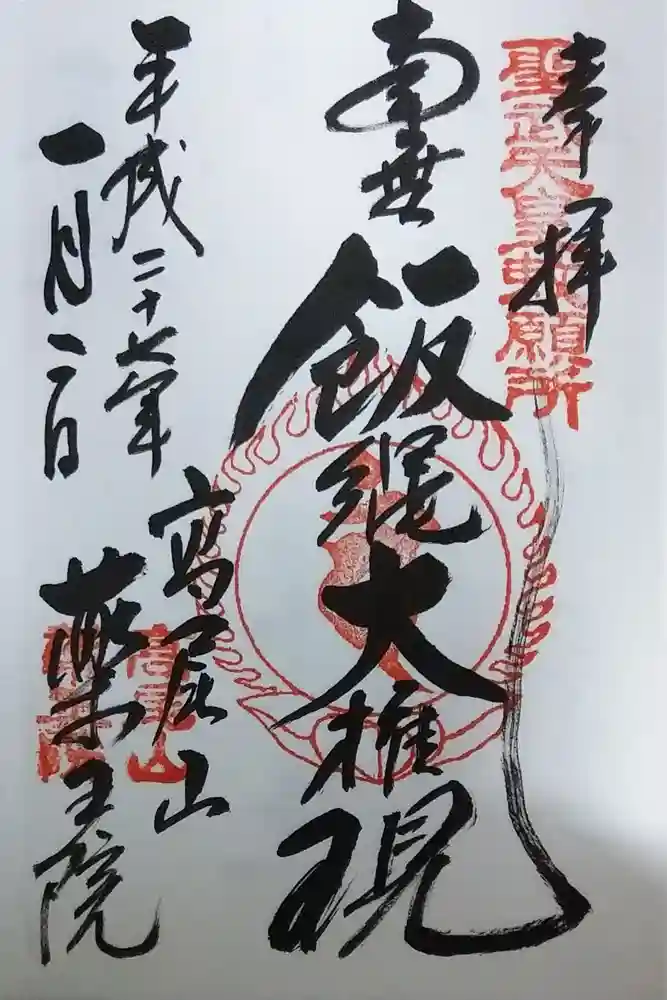 奉拝
聖武天皇勅願所
南無飯縄大権現
高尾山
薬王院
平成二十七年
一月二日
高尾山
薬王院